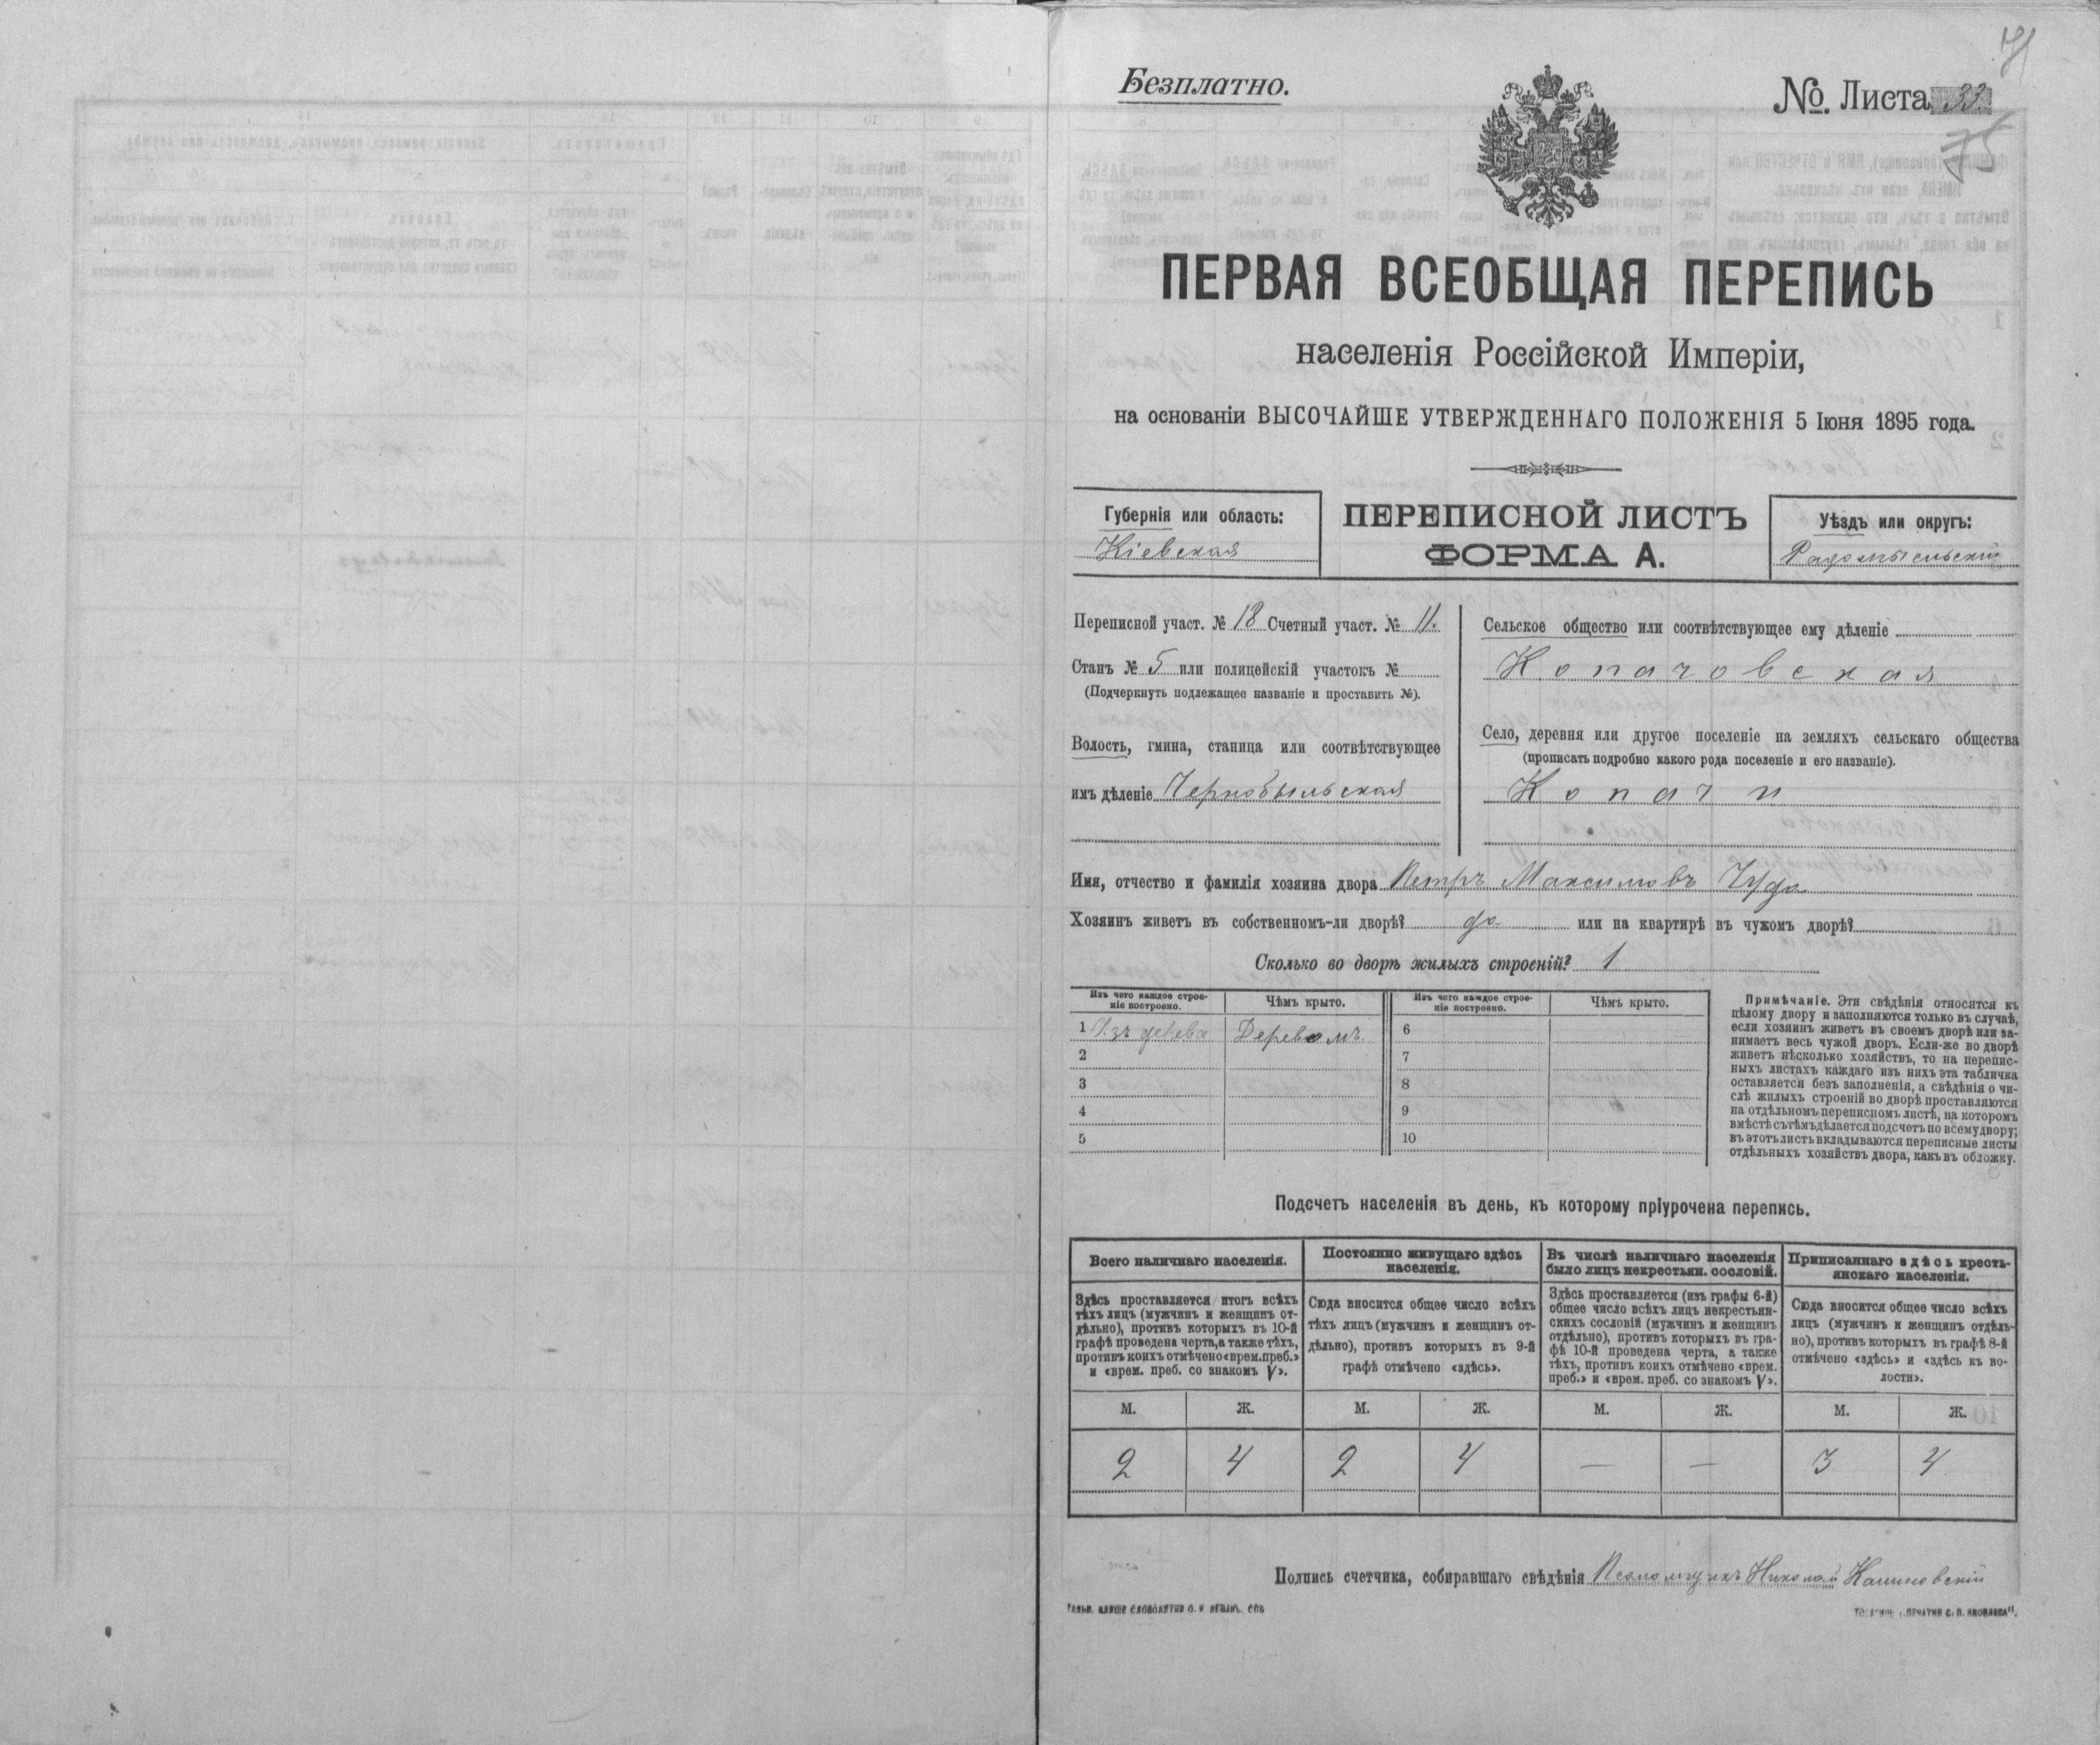 Безплатно.
№. Листа 33.
75
ПЕРВАЯ ВСЕОБЩАЯ ПЕРЕПИСЬ
населенія Россійской Имперіи,
на основаніи ВЫСОЧАЙШЕ УТВЕРЖДЕННАГО ПОЛОЖЕНІЯ 5 Іюня 1895 года.
Губернія или область:
Кіевская
ПЕРЕПИСНОЙ ЛИСТЪ
ФОРМА А.
Уѣздъ или округъ:
Радомысльскій
Переписной участ. № 18 Счетный участ. № 11.
Станъ № 5 или полицейскій участокъ №
(Подчеркнуть подлежащее названіе и проставить №).
Волость, гмина, станица или соотвѣтствующее
имъ дѣленіе Чернобыльская
Сельское общество или соотвѣтствующее ему дѣленіе
Копачовская
Село, деревня или другое поселеніе на земляхъ сельскаго общества
(прописать подробно какого рода поселеніе и его названіе).
Копачи
Имя, отчество и фамилія хозяина двора Петръ Максимовъ Чуда
Хозяинъ живетъ въ собственномъ-ли дворѣ? да или на квартирѣ въ чужомъ дворѣ?
Сколько во дворѣ жилыхъ строеній? 1
Изъ чего каждое строе-
ніе построено.
Чѣмъ крыто.
Изъ чего каждое строе-
ніе построено.
Чѣмъ крыто.
1 Изъ дерева Деревомъ. 6
2 7
3 8
4 9
5 10
Примѣчаніе. Эти свѣдѣнія относятся къ
цѣлому двору и заполняются только въ случаѣ,
если хозяинъ живетъ въ своемъ дворѣ или за-
нимаетъ весь чужой дворъ. Если-же во дворѣ
живетъ нѣсколько хозяйствъ, то на перепис-
ныхъ листахъ каждаго изъ нихъ эта табличка
оставляется безъ заполненія, а свѣдѣнія о чи-
слѣ жилыхъ строеній во дворѣ проставляются
на отдѣльномъ переписномъ листѣ, на которомъ
вмѣстѣ съ тѣмъ дѣлается подсчетъ по всему двору;
въ этотъ листъ вкладываются переписные листы
отдѣльныхъ хозяйствъ двора, какъ въ обложку.
Подсчетъ населенія въ день, къ которому пріурочена перепись.
Всего наличнаго населенія.
Здѣсь проставляется итогъ всѣхъ
тѣхъ лицъ (мужчинъ и женщинъ от-
дѣльно), противъ которыхъ въ 10-й
графѣ проведена черта, а также тѣхъ,
противъ коихъ отмѣчено «врем. преб.»
и «врем. преб. со знакомъ V».
Постоянно живущаго здѣсь
населенія.
Сюда вносится общее число всѣхъ
тѣхъ лицъ (мужчинъ и женщинъ от-
дѣльно), противъ которыхъ въ 9-й
графѣ отмѣчено «здѣсь».
Въ числѣ наличнаго населенія
было лицъ некрестьян. сословій.
Здѣсь проставляется (изъ графы 6-й)
общее число всѣхъ лицъ некрестьян-
скихъ сословій (мужчинъ и женщинъ
отдѣльно), противъ которыхъ въ гра-
фѣ 10-й проведена черта, а также
тѣхъ, противъ коихъ отмѣчено «врем.
преб.» и «врем. преб. со знакомъ V».
Приписаннаго здѣсь кресть-
янскаго населенія.
Сюда вносится общее число всѣхъ
лицъ (мужчинъ и женщинъ отдѣль-
но), противъ которыхъ въ графѣ 8-й
отмѣчено «здѣсь» и «здѣсь къ во-
лости».
М. Ж. М. Ж. М. Ж. М. Ж.
2 4 2 4 — — 3 4
Подпись счетчика, собиравшаго свѣдѣнія Псаломщикъ Николай Калиновскій